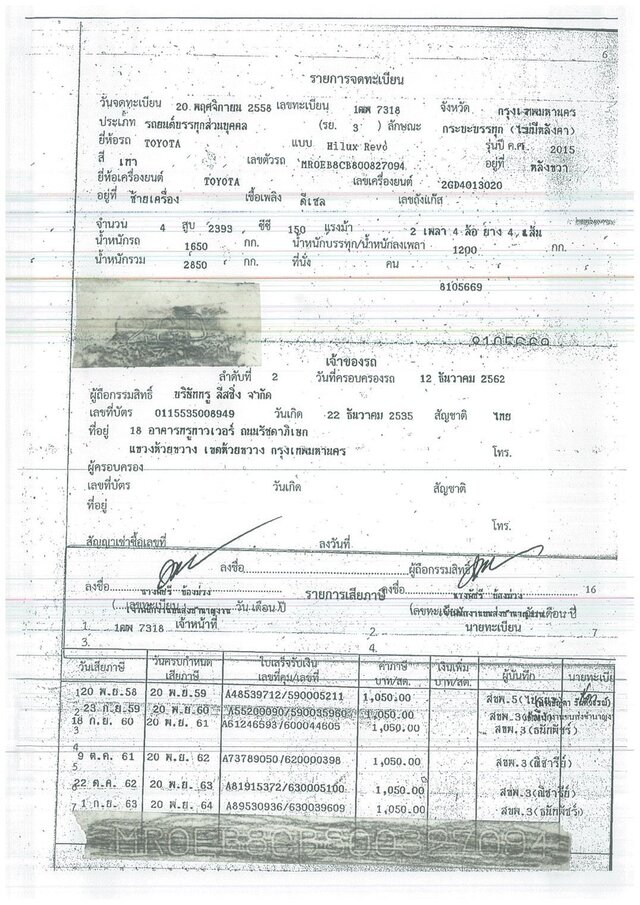 6
รายการจดทะเบียน
วันจดทะเบียน 20 พฤศจิกายน 2558 เลขทะเบียน 1ฒฒ 7318 จังหวัด กรุงเทพมหานคร
ประเภท รถยนต์บรรทุกส่วนบุคคล (รย. 3 ) ลักษณะ กระบะบรรทุก (ไม่มีหลังคา)
ยี่ห้อรถ TOYOTA แบบ Hilux Revo รุ่นปี ค.ศ. 2015
สี เทา เลขตัวรถ MR0EB8CB800827094 อยู่ที่ หลังขวา
ยี่ห้อเครื่องยนต์ TOYOTA เลขเครื่องยนต์ 2GD4013020
อยู่ที่ ซ้ายเครื่อง เชื้อเพลิง ดีเซล เลขถังแก๊ส
จำนวน 4 สูบ 2393 ซีซี 150 แรงม้า 2 เพลา 4 ล้อ ยาง 4 เส้น
น้ำหนักรถ 1650 กก. น้ำหนักบรรทุก/น้ำหนักลงเพลา 1200 กก.
น้ำหนักรวม 2850 กก. ที่นั่ง คน
8105669
8105669
เจ้าของรถ
ลำดับที่ 2 วันที่ครอบครองรถ 12 ธันวาคม 2562
ผู้ถือกรรมสิทธิ์ บริษัททรู ลีสซิ่ง จำกัด
เลขที่บัตร 0115535008949 วันเกิด 22 ธันวาคม 2535 สัญชาติ ไทย
ที่อยู่ 18 อาคารทรูทาวเวอร์ ถนนรัชดาภิเษก
แขวงห้วยขวาง เขตห้วยขวาง กรุงเทพมหานคร โทร.
ผู้ครอบครอง
เลขที่บัตร วันเกิด สัญชาติ
ที่อยู่
โทร.
สัญญาเช่าซื้อเลขที่ ลงวันที่
ลงชื่อ ผู้ถือกรรมสิทธิ์
ลงชื่อ ลงชื่อ 16
รายการเสียภาษี
เลขทะเบียน วัน เดือน ปี
1. 1ฒฒ 7318 เจ้าหน้าที่ 2. นายทะเบียน 7
3. 4.
วันเสียภาษี วันครบกำหนดเสียภาษี ใบเสร็จรับเงิน เล่มที่คุม/เลขที่ ค่าภาษี บาท/สต. เงินเพิ่ม บาท/สต. ผู้บันทึก นายทะเบีย
1 20 พ.ย.58 20 พ.ย.59 A48539712/590005211 1,050.00 สขพ.5
2 23 ก.ย.59 20 พ.ย.60 A55200090/590035960 1,050.00 สขพ.3
3 18 ก.ย. 60 20 พ.ย. 61 A61246593/600044605 1,050.00 สขพ.3(ธนักพัชร์)
4
9 ต.ค. 61 20 พ.ย. 62 A73789050/620000398 1,050.00 สขพ.3(ณิชารีย์)
5
6 22 ต.ค. 62 20 พ.ย. 63 A81915372/630005100 1,050.00 สขพ.3(ณิชารีย์)
7 1 ก.ย. 63 20 พ.ย. 64 A89530936/630039609 1,050.00 สขพ.3(ธนักพัชร์)